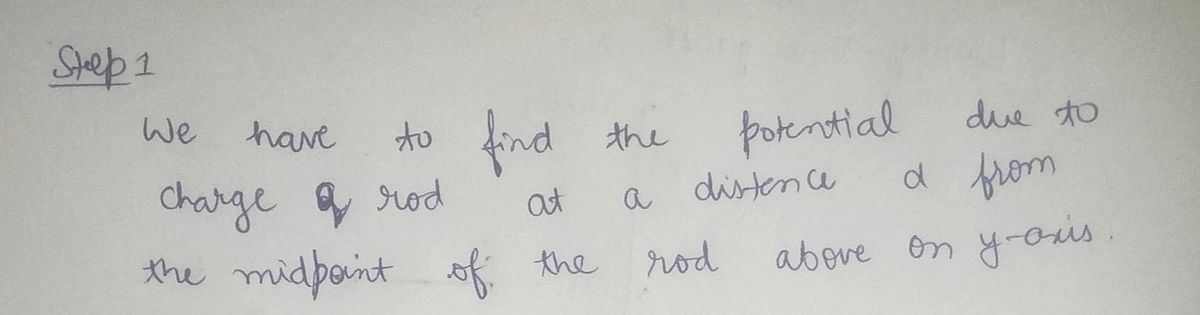 Step 1
We have to find the potential due to
charge q rod at a distence d from
the midpoint of the rod above on y-axis.